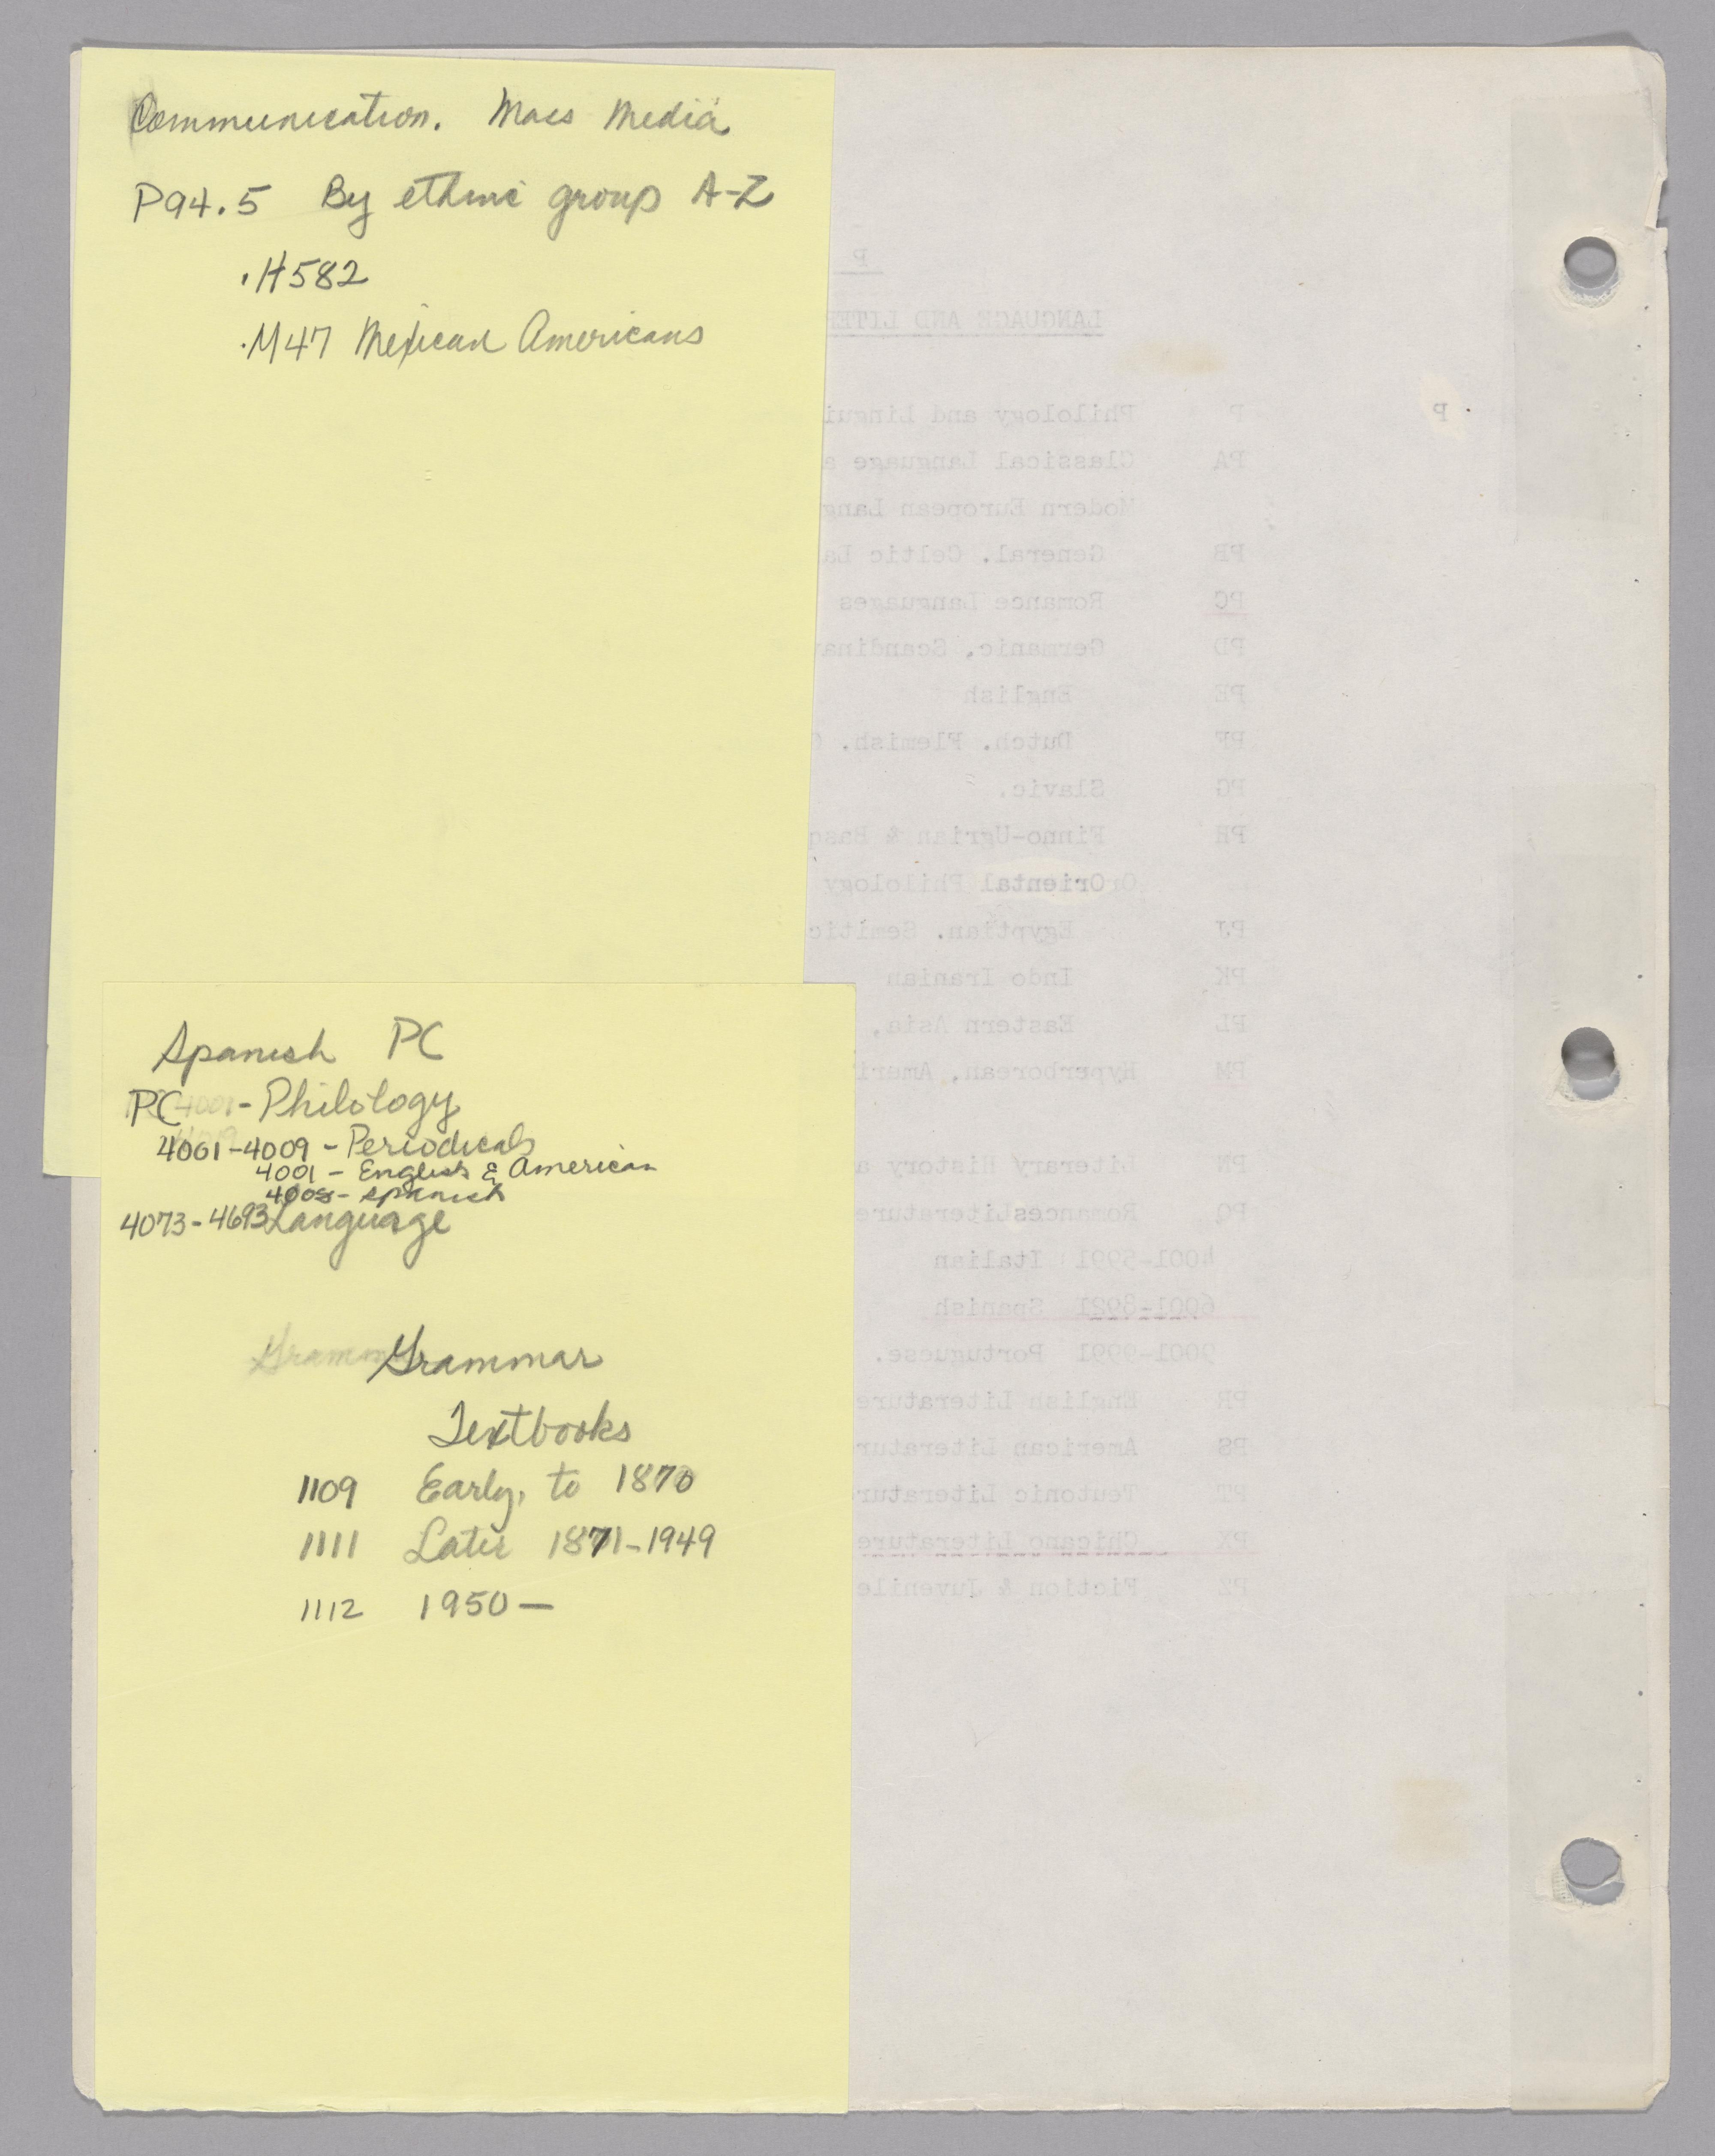 Communication. Mass Media
P94.5 By ethnic group A-Z
.H582
.M47 Mexican Americans
Spanish PC
PC 4001 - Philology
4001-4009 - Periodicals
4001 - English & American
4008 - Spanish
4073-4693 Language
Gramm Grammar
Textbooks
1109 Early, to 1870
1111 Later 1871-1949
1112 1950—
P
LANGUAGE AND LITER
P P Philology and Lingui
PA Classical Language a
Modern European Lang
PB General. Celtic La
PC Romance Languages
PD Germanic, Scandinav
PE English
PF Dutch. Flemish.
PG Slavic.
PH Finno-Ugrian & Basq
OrOriental Philology
PJ Egyptian. Semitic
PK Indo Iranian
PL Eastern Asia,
PM Hyperborean, Ameri
PN Literary History a
PQ RomancesLiterature
4001-5991 Italian
6001-8921 Spanish
9001-9991 Portuguese.
PR English Literature
PS American Literatur
PT Teutonic Literatur
PX Chicano Literature
PZ Fiction & Juvenile